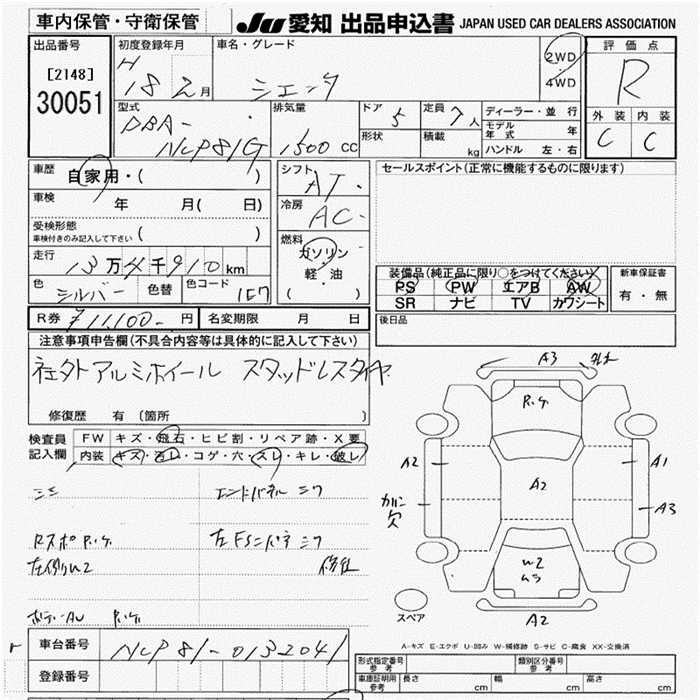 車内保管・守衛保管
JU 愛知 出品申込書 JAPAN USED CAR DEALERS ASSOCIATION
出品番号
[2148]
30051
初度登録年月
H 18 2月
車名・グレード
シエンタ
2WD
4WD
評価点
R
外装 内装
C C
型式
DBA-
NCP81G
排気量
1500 cc
ドア 5
形状
定員 7人
積載 kg
ディーラー・並行
モデル年式 年
ハンドル 左・右
車歴
自家用・( )
車検 年 月( 日)
受検形態
車検付きのみ記入して下さい ( )
走行
13万4千910km
色 シルバー 色替 色コード 1E7
シフト
AT.
冷房
AC-
燃料
ガソリン
軽・油
( )
セールスポイント(正常に機能するものに限ります)
装備品(純正品に限り○をつけてください)
PS PW エアB AW
SR ナビ TV カワシート
新車保証書
有・無
R券 ¥11,100- 円 名変期限 月 日
後日品
注意事項申告欄(不具合内容等は具体的に記入して下さい)
社外アルミホイール スタッドレスタイヤ
修復歴 有 (箇所 )
検査員
記入欄
FW キズ・飛石・ヒビ割・リペア跡・X要
内装 キズ・汚レ・コゲ・穴・スレ・キレ・破レ
エンドパネル シワ
左側W2
A3
A2
A1
A2
A3
欠
W2
ムラ
A2
スペア
A-キズ E-エクボ U-凹み W-補修跡 S-サビ C-腐食 XX-交換済
車台番号 NCP81-0132041
登録番号
形式指定番号 参考
類別区分番号 参考
車庫証明用 参考 長さ cm 幅 cm 高さ cm